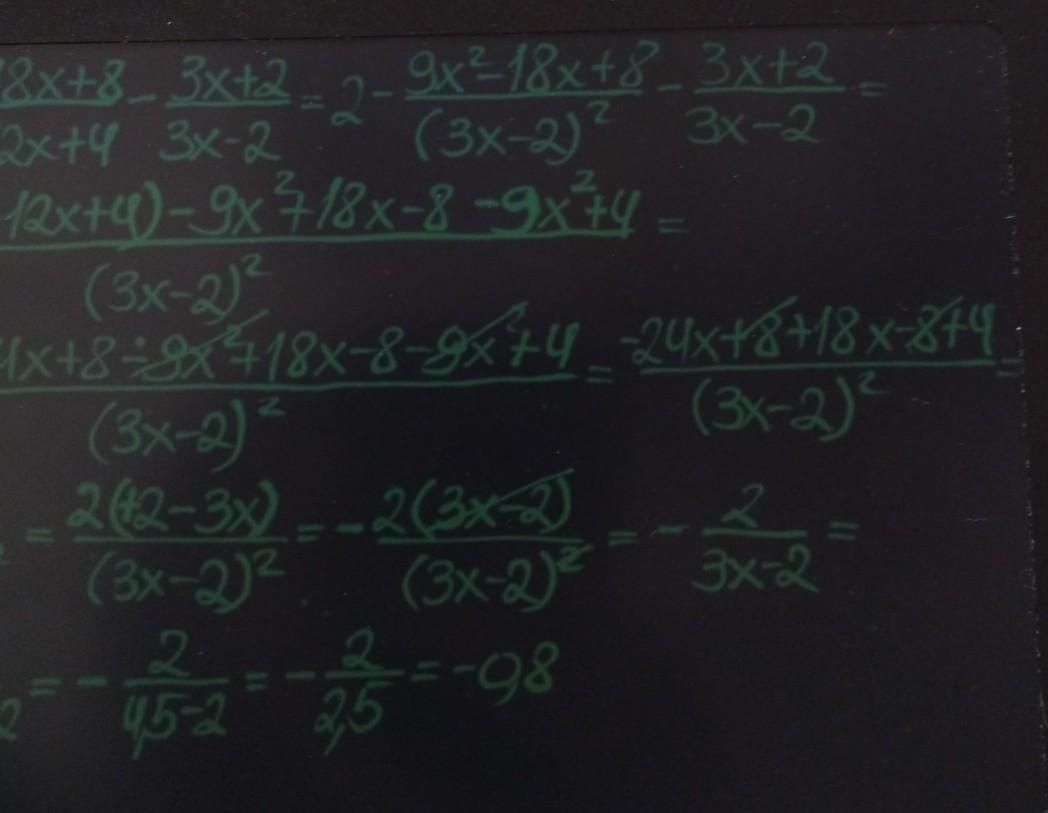 8x+8/2x+4 - 3x+2/3x-2 = 2 - 9x²-18x+8/(3x-2)² - 3x+2/3x-2 =
12x+4)-9x²+18x-8-9x²+4/(3x-2)² =
4x+8-9x²+18x-8-9x²+4/(3x-2)² = -24x+8+18x-8+4/(3x-2)² =
= 2(+2-3x)/(3x-2)² = - 2(3x-2)/(3x-2)² = - 2/3x-2 =
2 = - 2/4,5-2 = - 2/2,5 = -0,8